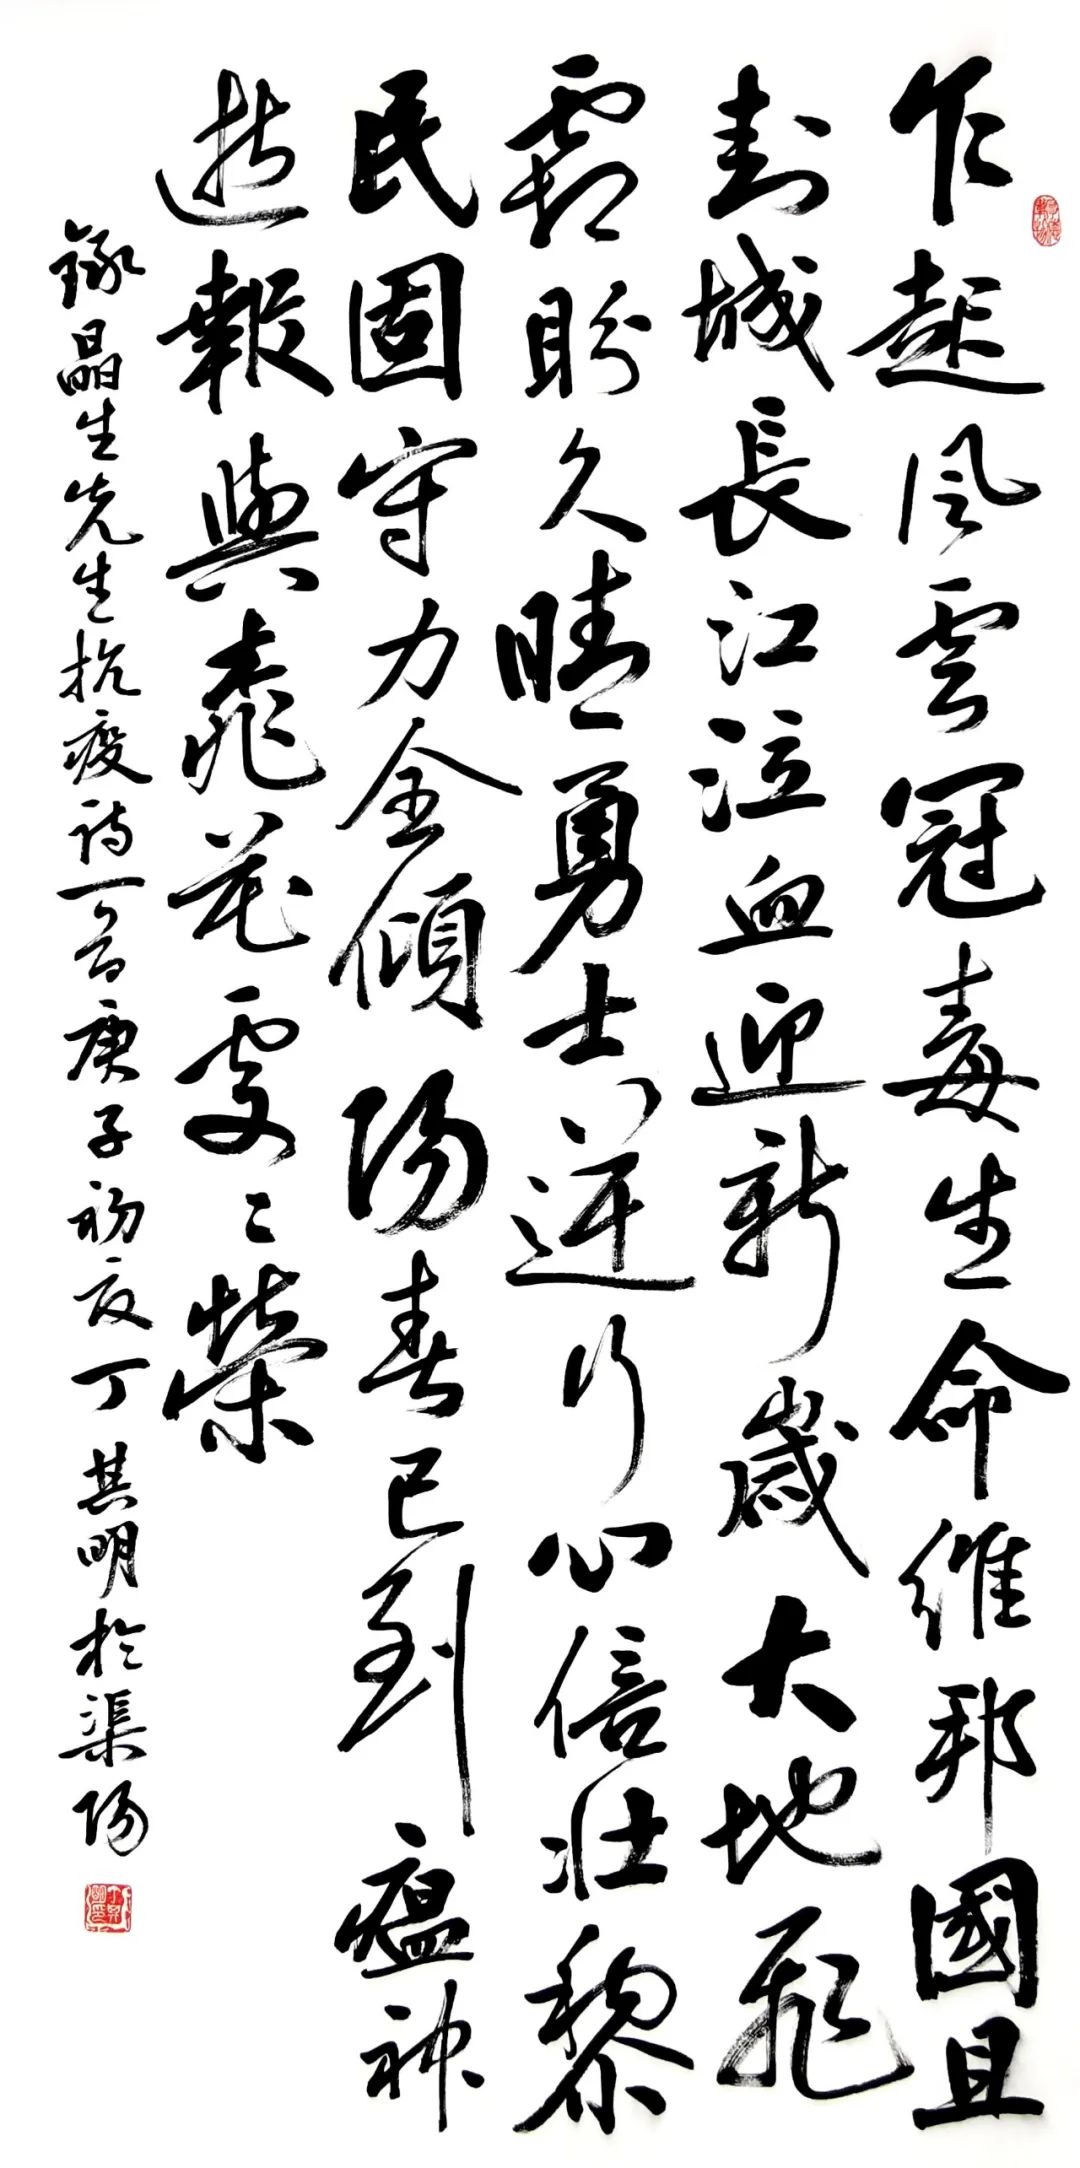 乍起風雲冠毒生命維邦國且
封城長江泣血迎新歲大地飛
霜盼久晴勇士逆行心倍壯黎
民固守力全傾陽春已到瘟神
逝報與桃花處〻榮
錄晶生先生抗疫詩一首庚子初夏丁其明於渠陽